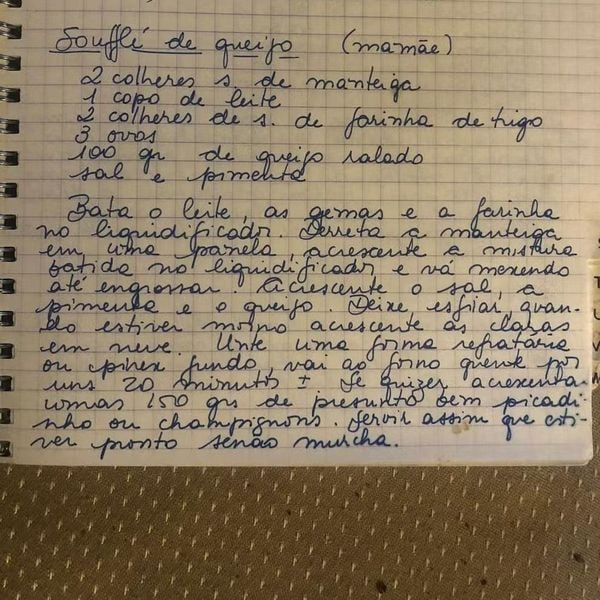 Soufflé de queijo (mamãe)
2 colheres s. de manteiga
1 copo de leite
2 colheres de s. de farinha de trigo
3 ovos
100 gr de queijo ralado
sal e pimenta
Bata o leite, as gemas e a farinha
no liquidificador. Derreta a manteiga
em uma panela, acrescente a mistura
batida no liquidificador, e vá mexendo
até engrossar. Acrescente o sal, a
pimenta e o queijo. Deixe, esfriar, quan-
do estiver morno acrescente as claras
em neve. Unte uma forma refratária
ou pirex fundo, vai ao forno quente por
uns 20 minutos ± Se quizer acrescenta
umas 150 grs de presunto bem picadi-
nho ou champignons. Servir assim que esti-
ver pronto senão murcha.